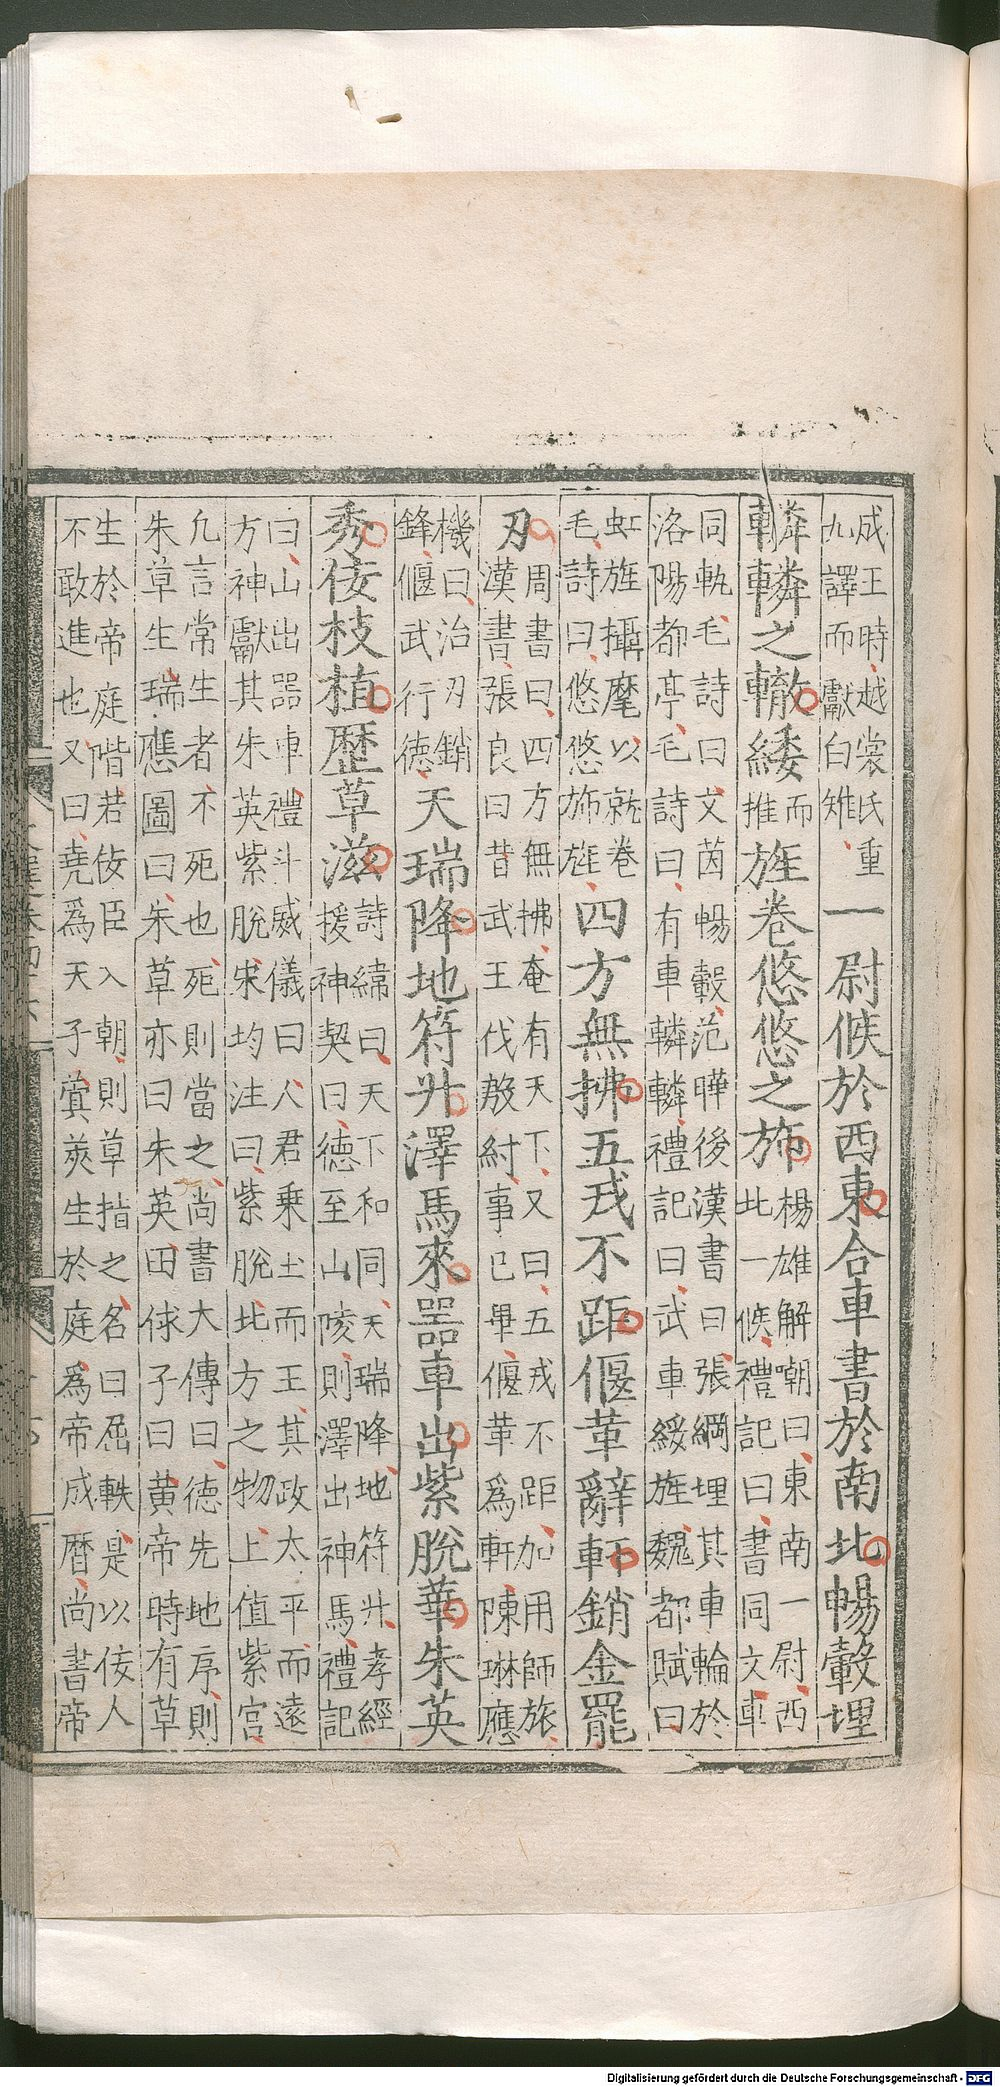 成王時越裳氏重
九譯而獻白雉
一尉候於西東合車書於南北暢轂埋
轔轔之轍緌
而
推
旌卷悠悠之斾
楊雄解嘲曰東南一尉西
北一候禮記曰書同文車
同軌毛詩曰文茵暢轂范曄後漢書曰張綱埋其車輪於
洛陽都亭毛詩曰有車轔轔禮記曰武車綏旌魏都賦曰
虹旌攝麾以就卷
毛詩曰悠悠斾旌
四方無拂五戎不距偃革辭軒銷金罷
刃
周書曰四方無拂奄有天下又曰五戎不距加用師旅
漢書張良曰昔武王伐殷紂事已畢偃革爲軒陳琳應
機曰治刃銷
鋒偃武行德
天瑞降地符升澤馬來器車出紫脫華朱英
秀佞枝植歷草滋
詩緯曰天下和同天瑞降地符升孝經
援神契曰德至山陵則澤出神馬禮記
曰山出器車禮斗威儀曰人君乗土而王其政太平而遠
方神獻其朱英紫脫宋均注曰紫脫北方之物上值紫宮
凢言常生者不死也死則當之尚書大傳曰德先地序則
朱草生瑞應圖曰朱草亦曰朱英田俅子曰黃帝時有草
生於帝庭階若佞臣入朝則草指之名曰屈軼是以佞人
不敢進也又曰堯爲天子蓂莢生於庭爲帝成曆尚書帝
Digitalisierung gefördert durch die Deutsche Forschungsgemeinschaft - DFG